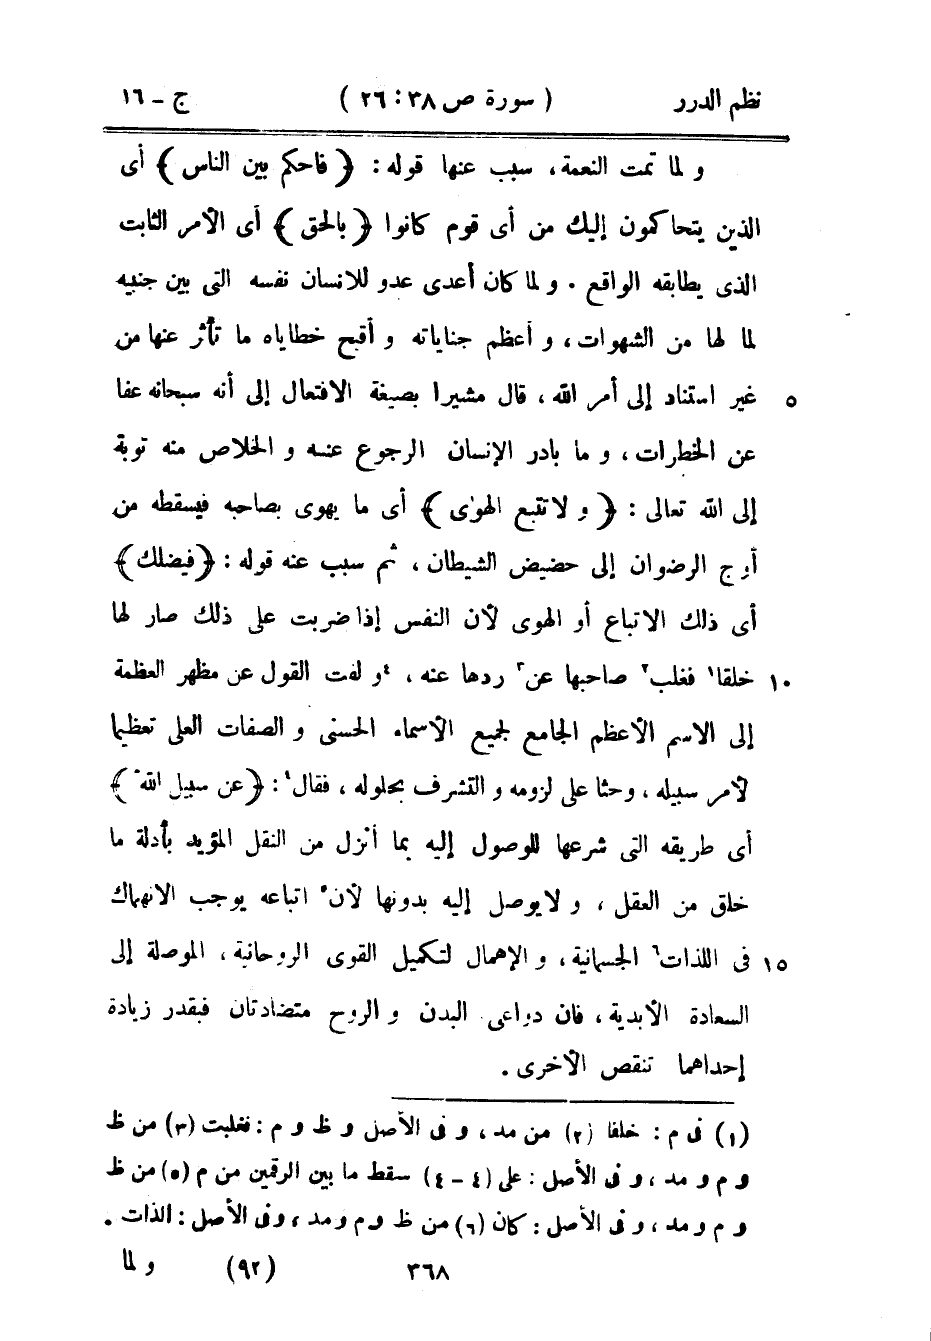 نظم الدرر ( سورة ص ٣٨ : ٢٦ ) ج - ١٦
و لما تمت النعمة، سبب عنها قوله : ﴿ فاحكم بين الناس ﴾ أى
الذين يتحاكمون إليك من أى قوم كانوا ﴿ بالحق ﴾ أى الأمر الثابت
الذى يطابقه الواقع . و لما كان أعدى عدو للانسان نفسه التى بين جنبيه
لما لها من الشهوات، و أعظم جناياته و أقبح خطاياه ما تأثر عنها من
غير استناد إلى أمر الله، قال مشيرا بصيغة الافتعال إلى أنه سبحانه عفا ٥
عن الخطرات، و ما بادر الإنسان الرجوع عنه و الخلاص منه توبة
إلى الله تعالى : ﴿ و لا تتبع الهوٰى ﴾ أى ما يهوى بصاحبه فيسقطه من
أوج الرضوان إلى حضيض الشيطان، ثم سبب عنه قوله : ﴿ فيضلك ﴾
أى ذلك الاتباع أو الهوى لأن النفس إذا ضربت على ذلك صار لها
خلقا١ فغلب٢ صاحبها عن٣ ردها عنه، ٤و لفت القول عن مظهر العظمة ١٠
إلى الاسم الأعظم الجامع لجميع الأسماء الحسنى و الصفات العلى تعظيما
لأمر سبيله، وحثا على لزومه و التشرف بحلوله، فقال٤ : ﴿ عن سبيل الله ﴾
أى طريقه التى شرعها للوصول إليه بما أنزل من النقل المؤيد بأدلة ما
خلق من العقل، و لا يوصل إليه بدونها لأن٥ اتباعه يوجب الانهماك
فى اللذات٦ الجسمانية، و الإهمال لتكميل القوى الروحانية، الموصلة إلى ١٥
السعادة الأبدية، فان دواعى البدن و الروح متضادتان فبقدر زيادة
إحداهما تنقص الأخرى .
(١) فى م : خلفا (٢) من مد، و فى الأصل و ظ و م : فغلبت (٣) من ظ
و م و مد، و فى الأصل : على (٤ - ٤) سقط ما بين الرقمين من م (٥) من ظ
و م و مد، و فى الأصل : كان (٦) من ظ و م و مد، وفى الأصل : الذات .
٣٦٨ (٩٢) و لما